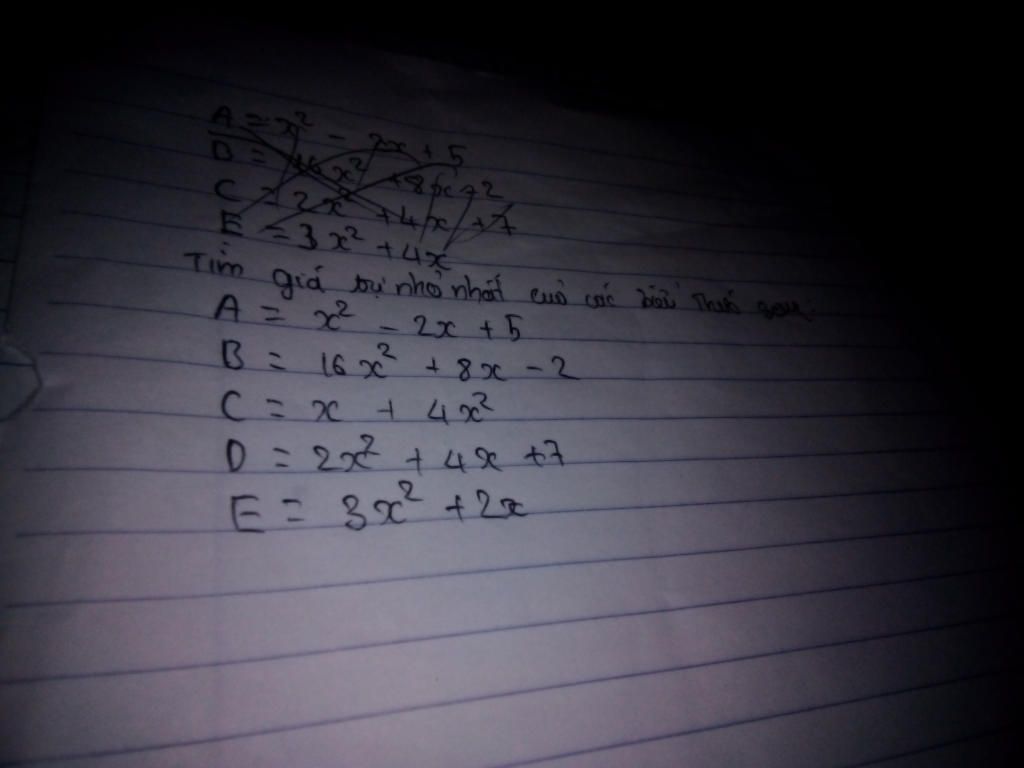 A = x² - 2x + 5
D = 16x² + 8x - 2
C = 2x² + 4x + 7
E = 3x² + 4x
Tìm giá trị nhỏ nhất của các biểu thức sau:
A = x² - 2x + 5
B = 16x² + 8x - 2
C = x + 4x²
D = 2x² + 4x + 7
E = 3x² + 2x